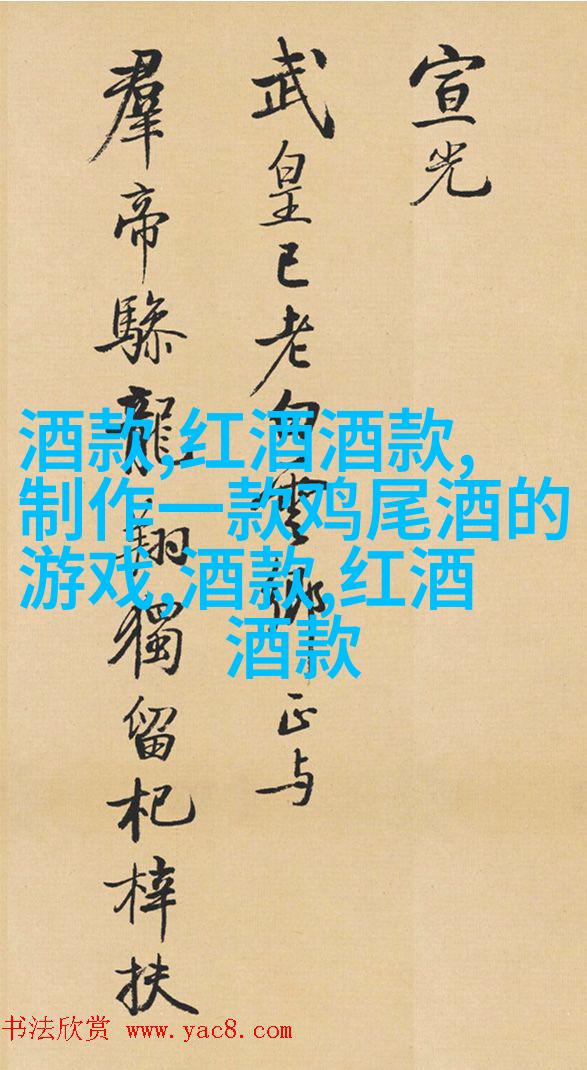 宣光
武皇已老白雲鄉正与
羣帝驂龍翔獨留杞梓扶
酒款,红酒酒款,
制作一款鸡尾酒的
游戏,酒款,红酒
酒款
书法欣赏 www.yac8.com